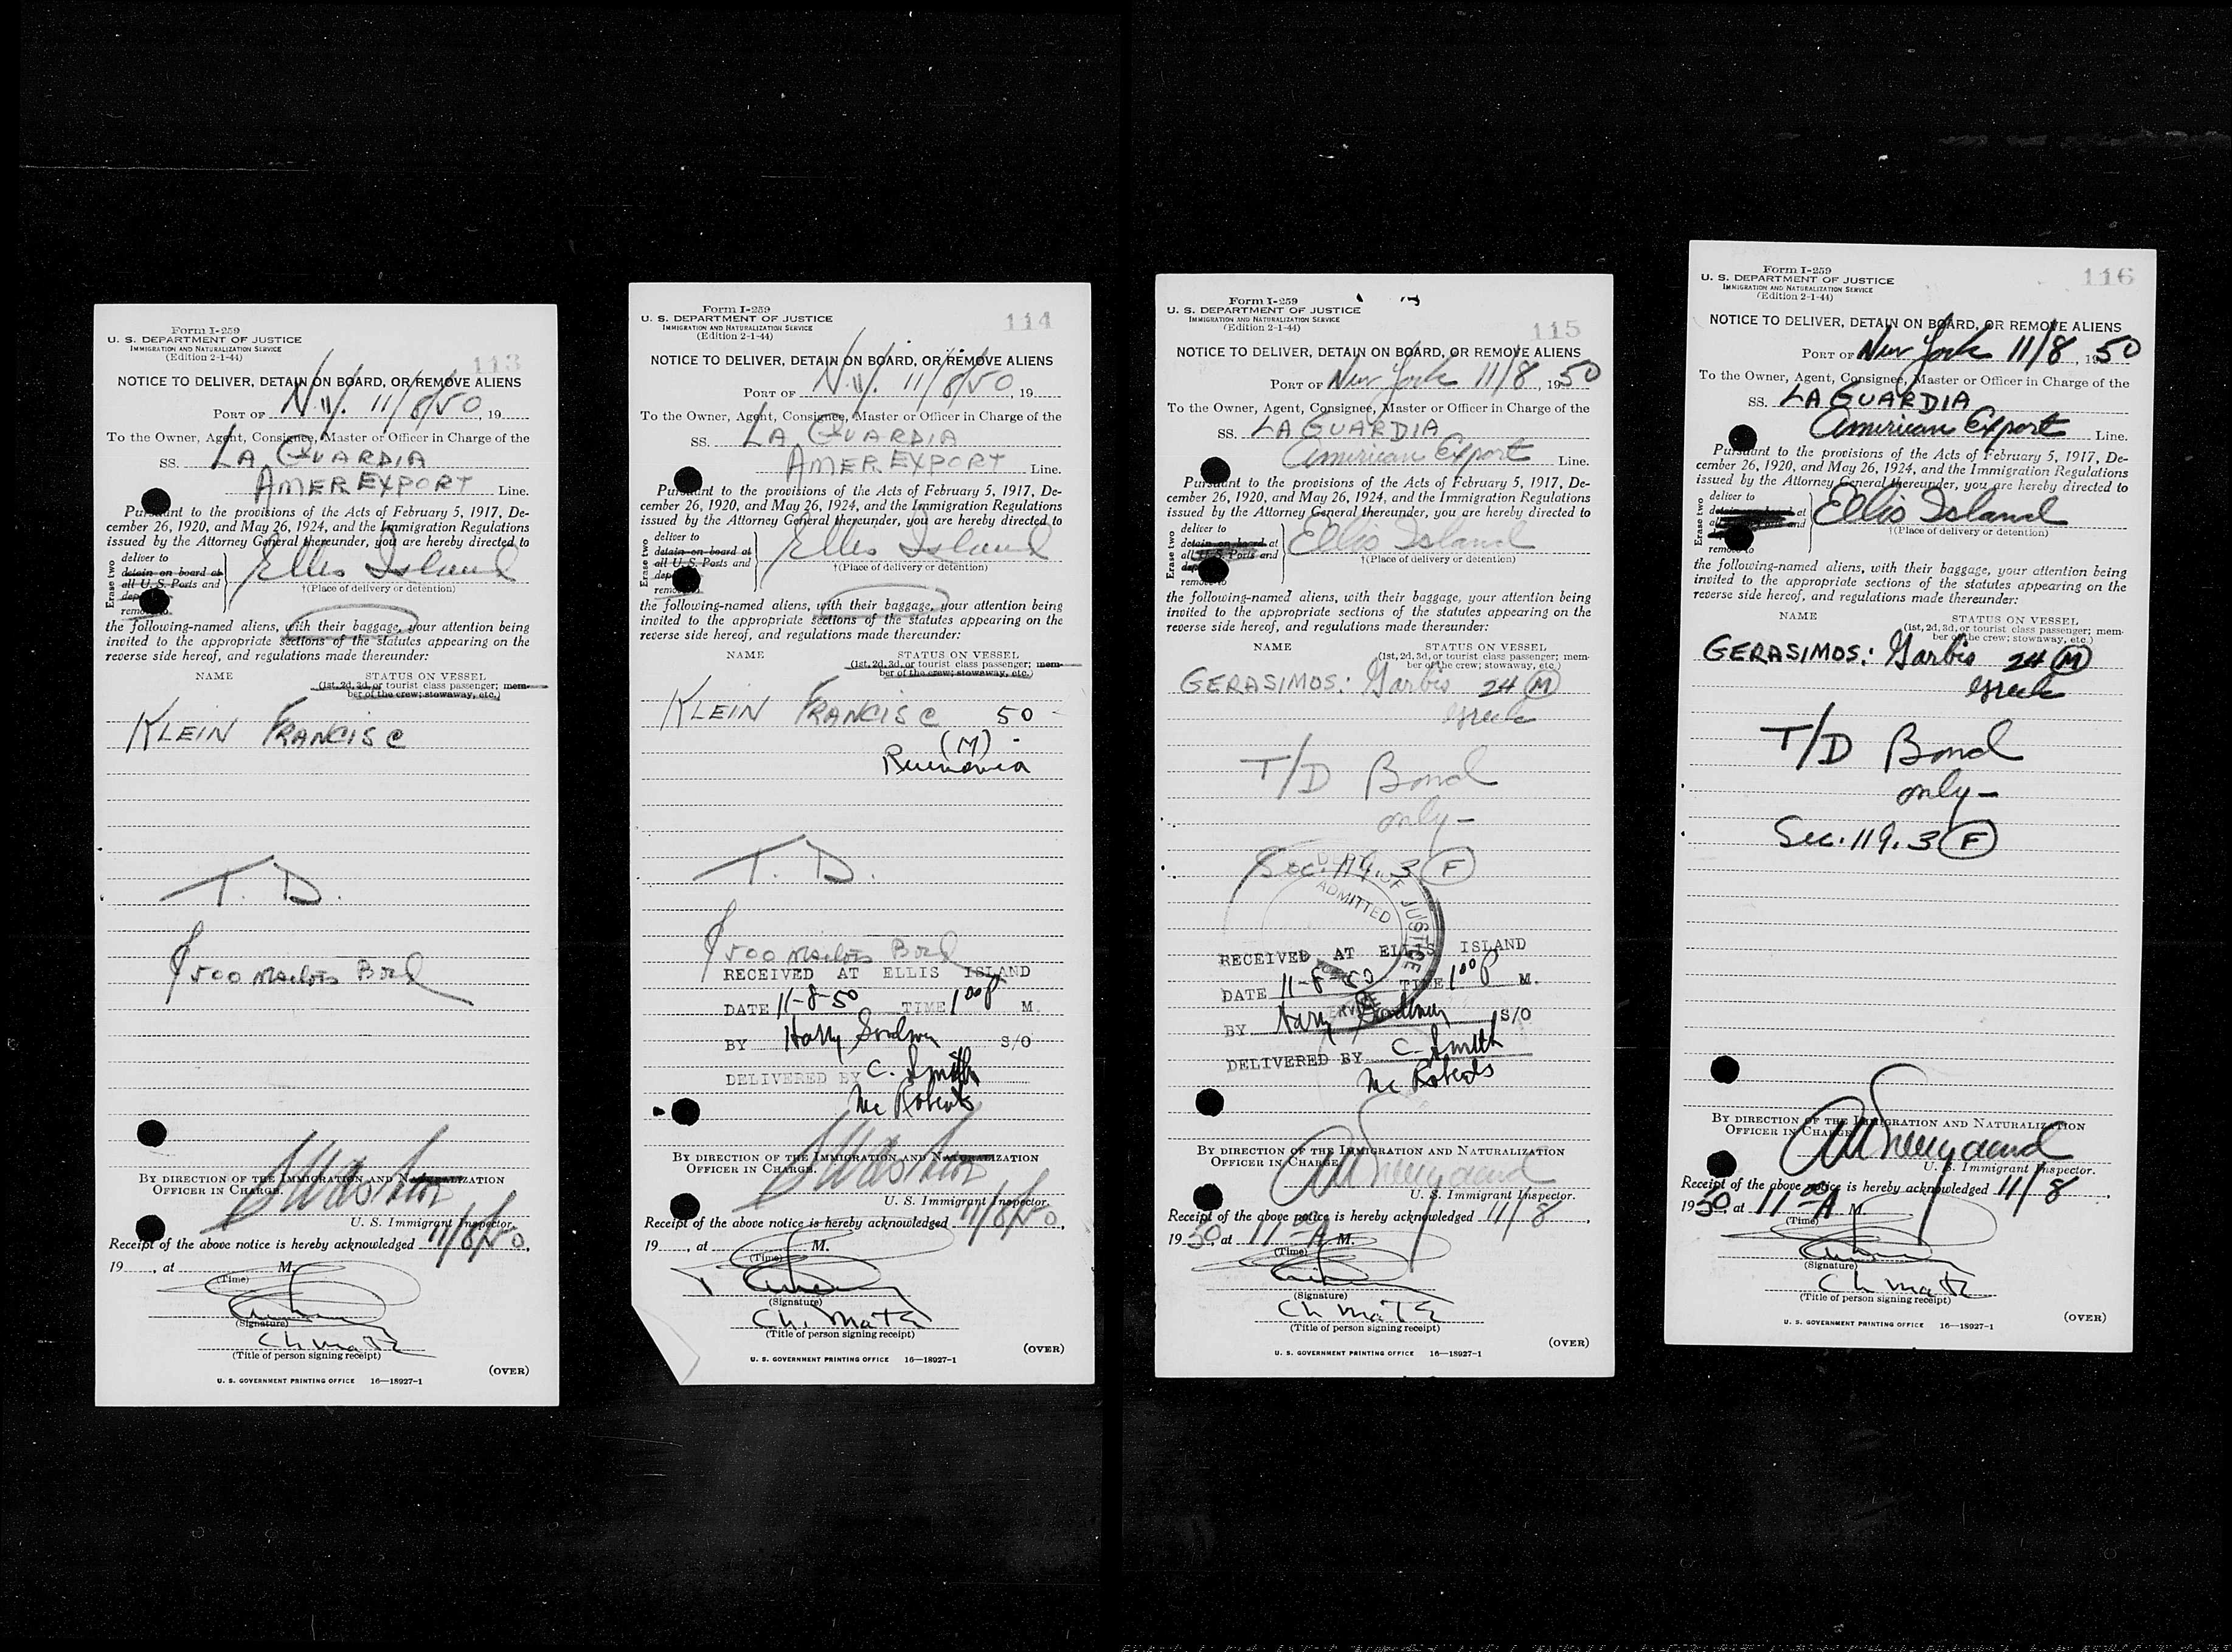 Form I-259
U. S. DEPARTMENT OF JUSTICE
IMMIGRATION AND NATURALIZATION SERVICE
(Edition 2-1-44)
113
NOTICE TO DELIVER, DETAIN ON BOARD, OR REMOVE ALIENS
PORT OF N.Y. 11/8/50, 19
To the Owner, Agent, Consignee, Master or Officer in Charge of the
SS. LA GUARDIA
AMER EXPORT Line.
Pursuant to the provisions of the Acts of February 5, 1917, De-
cember 26, 1920, and May 26, 1924, and the Immigration Regulations
issued by the Attorney General thereunder, you are hereby directed to
Erase two
deliver to
detain on board at
all U. S. Ports and
dep
remove to
Ellis Island
†(Place of delivery or detention)
the following-named aliens, with their baggage, your attention being
invited to the appropriate sections of the statutes appearing on the
reverse side hereof, and regulations made thereunder:
NAME STATUS ON VESSEL
(1st, 2d, 3d, or tourist class passenger; mem-
ber of the crew; stowaway, etc.)
KLEIN FRANCISC
T. D.
$500 Bond
BY DIRECTION OF THE IMMIGRATION AND NATURALIZATION
OFFICER IN CHARGE.
U. S. Immigrant Inspector.
Receipt of the above notice is hereby acknowledged 11/8/50,
19, at M.
(Time)
(Signature)
Ch. Mate
(Title of person signing receipt)
(OVER)
U. S. GOVERNMENT PRINTING OFFICE 16—18927-1
Form I-259
U. S. DEPARTMENT OF JUSTICE
IMMIGRATION AND NATURALIZATION SERVICE
(Edition 2-1-44)
114
NOTICE TO DELIVER, DETAIN ON BOARD, OR REMOVE ALIENS
PORT OF N.Y. 11/8/50, 19
To the Owner, Agent, Consignee, Master or Officer in Charge of the
SS. LA GUARDIA
AMER EXPORT Line.
Pursuant to the provisions of the Acts of February 5, 1917, De-
cember 26, 1920, and May 26, 1924, and the Immigration Regulations
issued by the Attorney General thereunder, you are hereby directed to
Erase two
deliver to
detain on board at
all U. S. Ports and
dep
remove
Ellis Island
†(Place of delivery or detention)
the following-named aliens, with their baggage, your attention being
invited to the appropriate sections of the statutes appearing on the
reverse side hereof, and regulations made thereunder:
NAME STATUS ON VESSEL
(1st, 2d, 3d, or tourist class passenger; mem-
ber of the crew; stowaway, etc.)
KLEIN FRANCISC 50
(M)
Rumania
T. D.
$500 Bond
RECEIVED AT ELLIS ISLAND
DATE 11-8-50 TIME 1 00 P M.
BY Harry S/O
DELIVERED BY C. Smith
Mc Roberts
BY DIRECTION OF THE IMMIGRATION AND NATURALIZATION
OFFICER IN CHARGE.
U. S. Immigrant Inspector.
Receipt of the above notice is hereby acknowledged 11/8/50,
19, at M.
(Time)
(Signature)
Ch. Mate
(Title of person signing receipt)
(OVER)
U. S. GOVERNMENT PRINTING OFFICE 16—18927-1
Form I-259
U. S. DEPARTMENT OF JUSTICE
IMMIGRATION AND NATURALIZATION SERVICE
(Edition 2-1-44)
115
NOTICE TO DELIVER, DETAIN ON BOARD, OR REMOVE ALIENS
PORT OF New York 11/8, 1950
To the Owner, Agent, Consignee, Master or Officer in Charge of the
SS. LA GUARDIA
American Export Line.
Pursuant to the provisions of the Acts of February 5, 1917, De-
cember 26, 1920, and May 26, 1924, and the Immigration Regulations
issued by the Attorney General thereunder, you are hereby directed to
Erase two
deliver to
detain on board at
all U. S. Ports and
dep
remove to
Ellis Island
†(Place of delivery or detention)
the following-named aliens, with their baggage, your attention being
invited to the appropriate sections of the statutes appearing on the
reverse side hereof, and regulations made thereunder:
NAME STATUS ON VESSEL
(1st, 2d, 3d, or tourist class passenger; mem-
ber of the crew; stowaway, etc.)
GERASIMOS: Garbis 24 (M)
Greek
T/D Bond
only-
Sec. 119.3 (F)
ADMITTED
OF JUSTICE
RECEIVED AT ELLIS ISLAND
DATE 11-8-50 TIME 1 00 P M.
BY Harry S/O
DELIVERED BY C. Smith
Mc Roberts
BY DIRECTION OF THE IMMIGRATION AND NATURALIZATION
OFFICER IN CHARGE.
U. S. Immigrant Inspector.
Receipt of the above notice is hereby acknowledged 11/8,
1950, at 11 00 A M.
(Time)
(Signature)
Ch Mate
(Title of person signing receipt)
(OVER)
U. S. GOVERNMENT PRINTING OFFICE 16—18927-1
Form I-259
U. S. DEPARTMENT OF JUSTICE
IMMIGRATION AND NATURALIZATION SERVICE
(Edition 2-1-44)
116
NOTICE TO DELIVER, DETAIN ON BOARD, OR REMOVE ALIENS
PORT OF New York 11/8, 1950
To the Owner, Agent, Consignee, Master or Officer in Charge of the
SS. LA GUARDIA
American Export Line.
Pursuant to the provisions of the Acts of February 5, 1917, De-
cember 26, 1920, and May 26, 1924, and the Immigration Regulations
issued by the Attorney General thereunder, you are hereby directed to
Erase two
deliver to
at
and
remove to
Ellis Island
†(Place of delivery or detention)
the following-named aliens, with their baggage, your attention being
invited to the appropriate sections of the statutes appearing on the
reverse side hereof, and regulations made thereunder:
NAME STATUS ON VESSEL
(1st, 2d, 3d, or tourist class passenger; mem-
ber of the crew; stowaway, etc.)
GERASIMOS: Garbis 24 (M)
Greek
T/D Bond
only-
Sec. 119.3 (F)
BY DIRECTION OF THE IMMIGRATION AND NATURALIZATION
OFFICER IN CHARGE
U. S. Immigrant Inspector.
Receipt of the above notice is hereby acknowledged 11/8,
1950, at 11 00 A M.
(Time)
(Signature)
Ch Mate
(Title of person signing receipt)
(OVER)
U. S. GOVERNMENT PRINTING OFFICE 16—18927-1